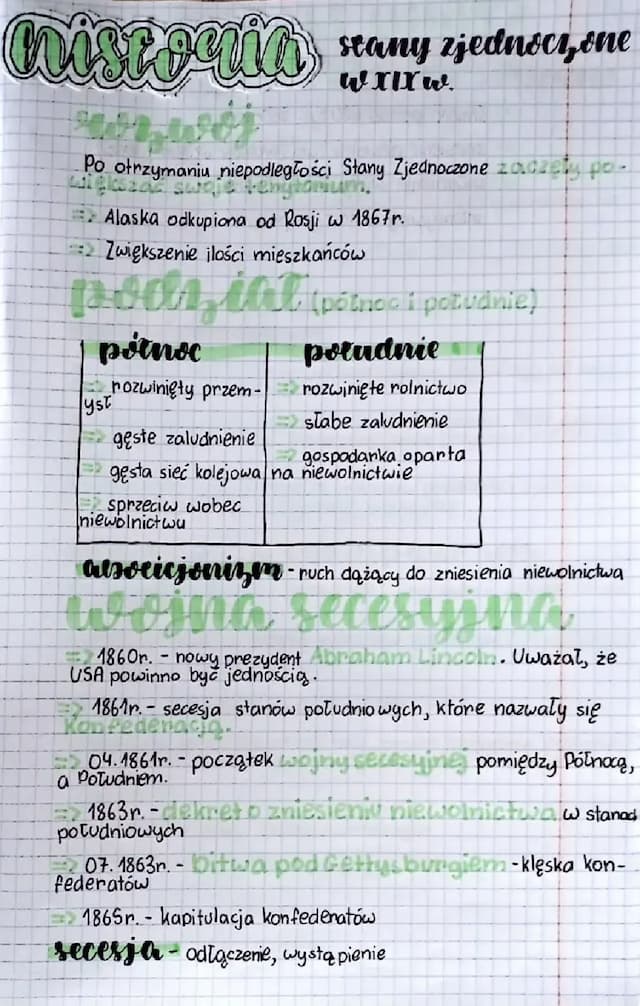 historia
stany zjednoczone
w XIX w.
rozwój
Po otrzymaniu niepodległości Stany Zjednoczone zaczęły po-
większać swoje terytorium.
=> Alaska odkupiona od Rosji w 1867r.
=> Zwiększenie ilości mieszkańców
podział (północ i południe)
północ
=> rozwinięty przem-
ysł
=> gęste zaludnienie
=> gęsta sieć kolejowa
=> sprzeciw wobec
niewolnictwu
południe
=> rozwinięte rolnictwo
=> słabe zaludnienie
=> gospodarka oparta
na niewolnictwie
abolicjonizm - ruch dążący do zniesienia niewolnictwa
wojna secesyjna
=> 1860r. - nowy prezydent Abraham Lincoln. Uważał, że
USA powinno być jednością.
=> 1861r. - secesja stanów południowych, które nazwały się
Konfederacją.
=> 04.1861r. - początek wojny secesyjnej pomiędzy Północą,
a Południem.
=> 1863r. - dekret o zniesieniu niewolnictwa w stanach
południowych
=> 07.1863r. - bitwa pod Gettysburgiem - klęska kon-
federatów
=> 1865r. - kapitulacja konfederatów
secesja - odłączenie, wystąpienie